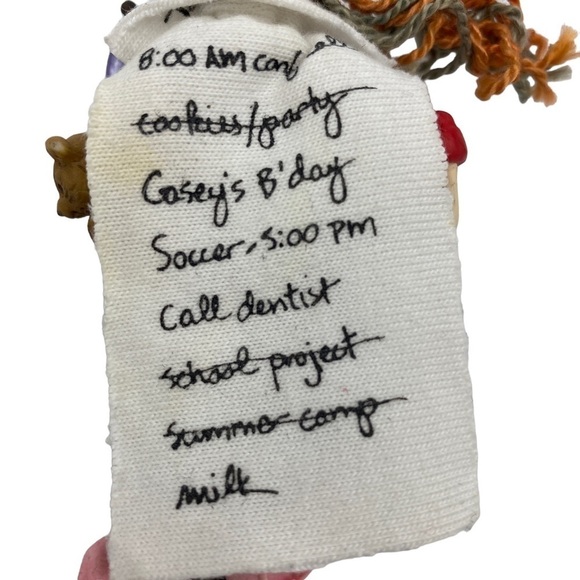 8:00 AM
cookies/party
Casey's B'day
Soccer, 5:00 pm
Call dentist
school project
summer camp
milk